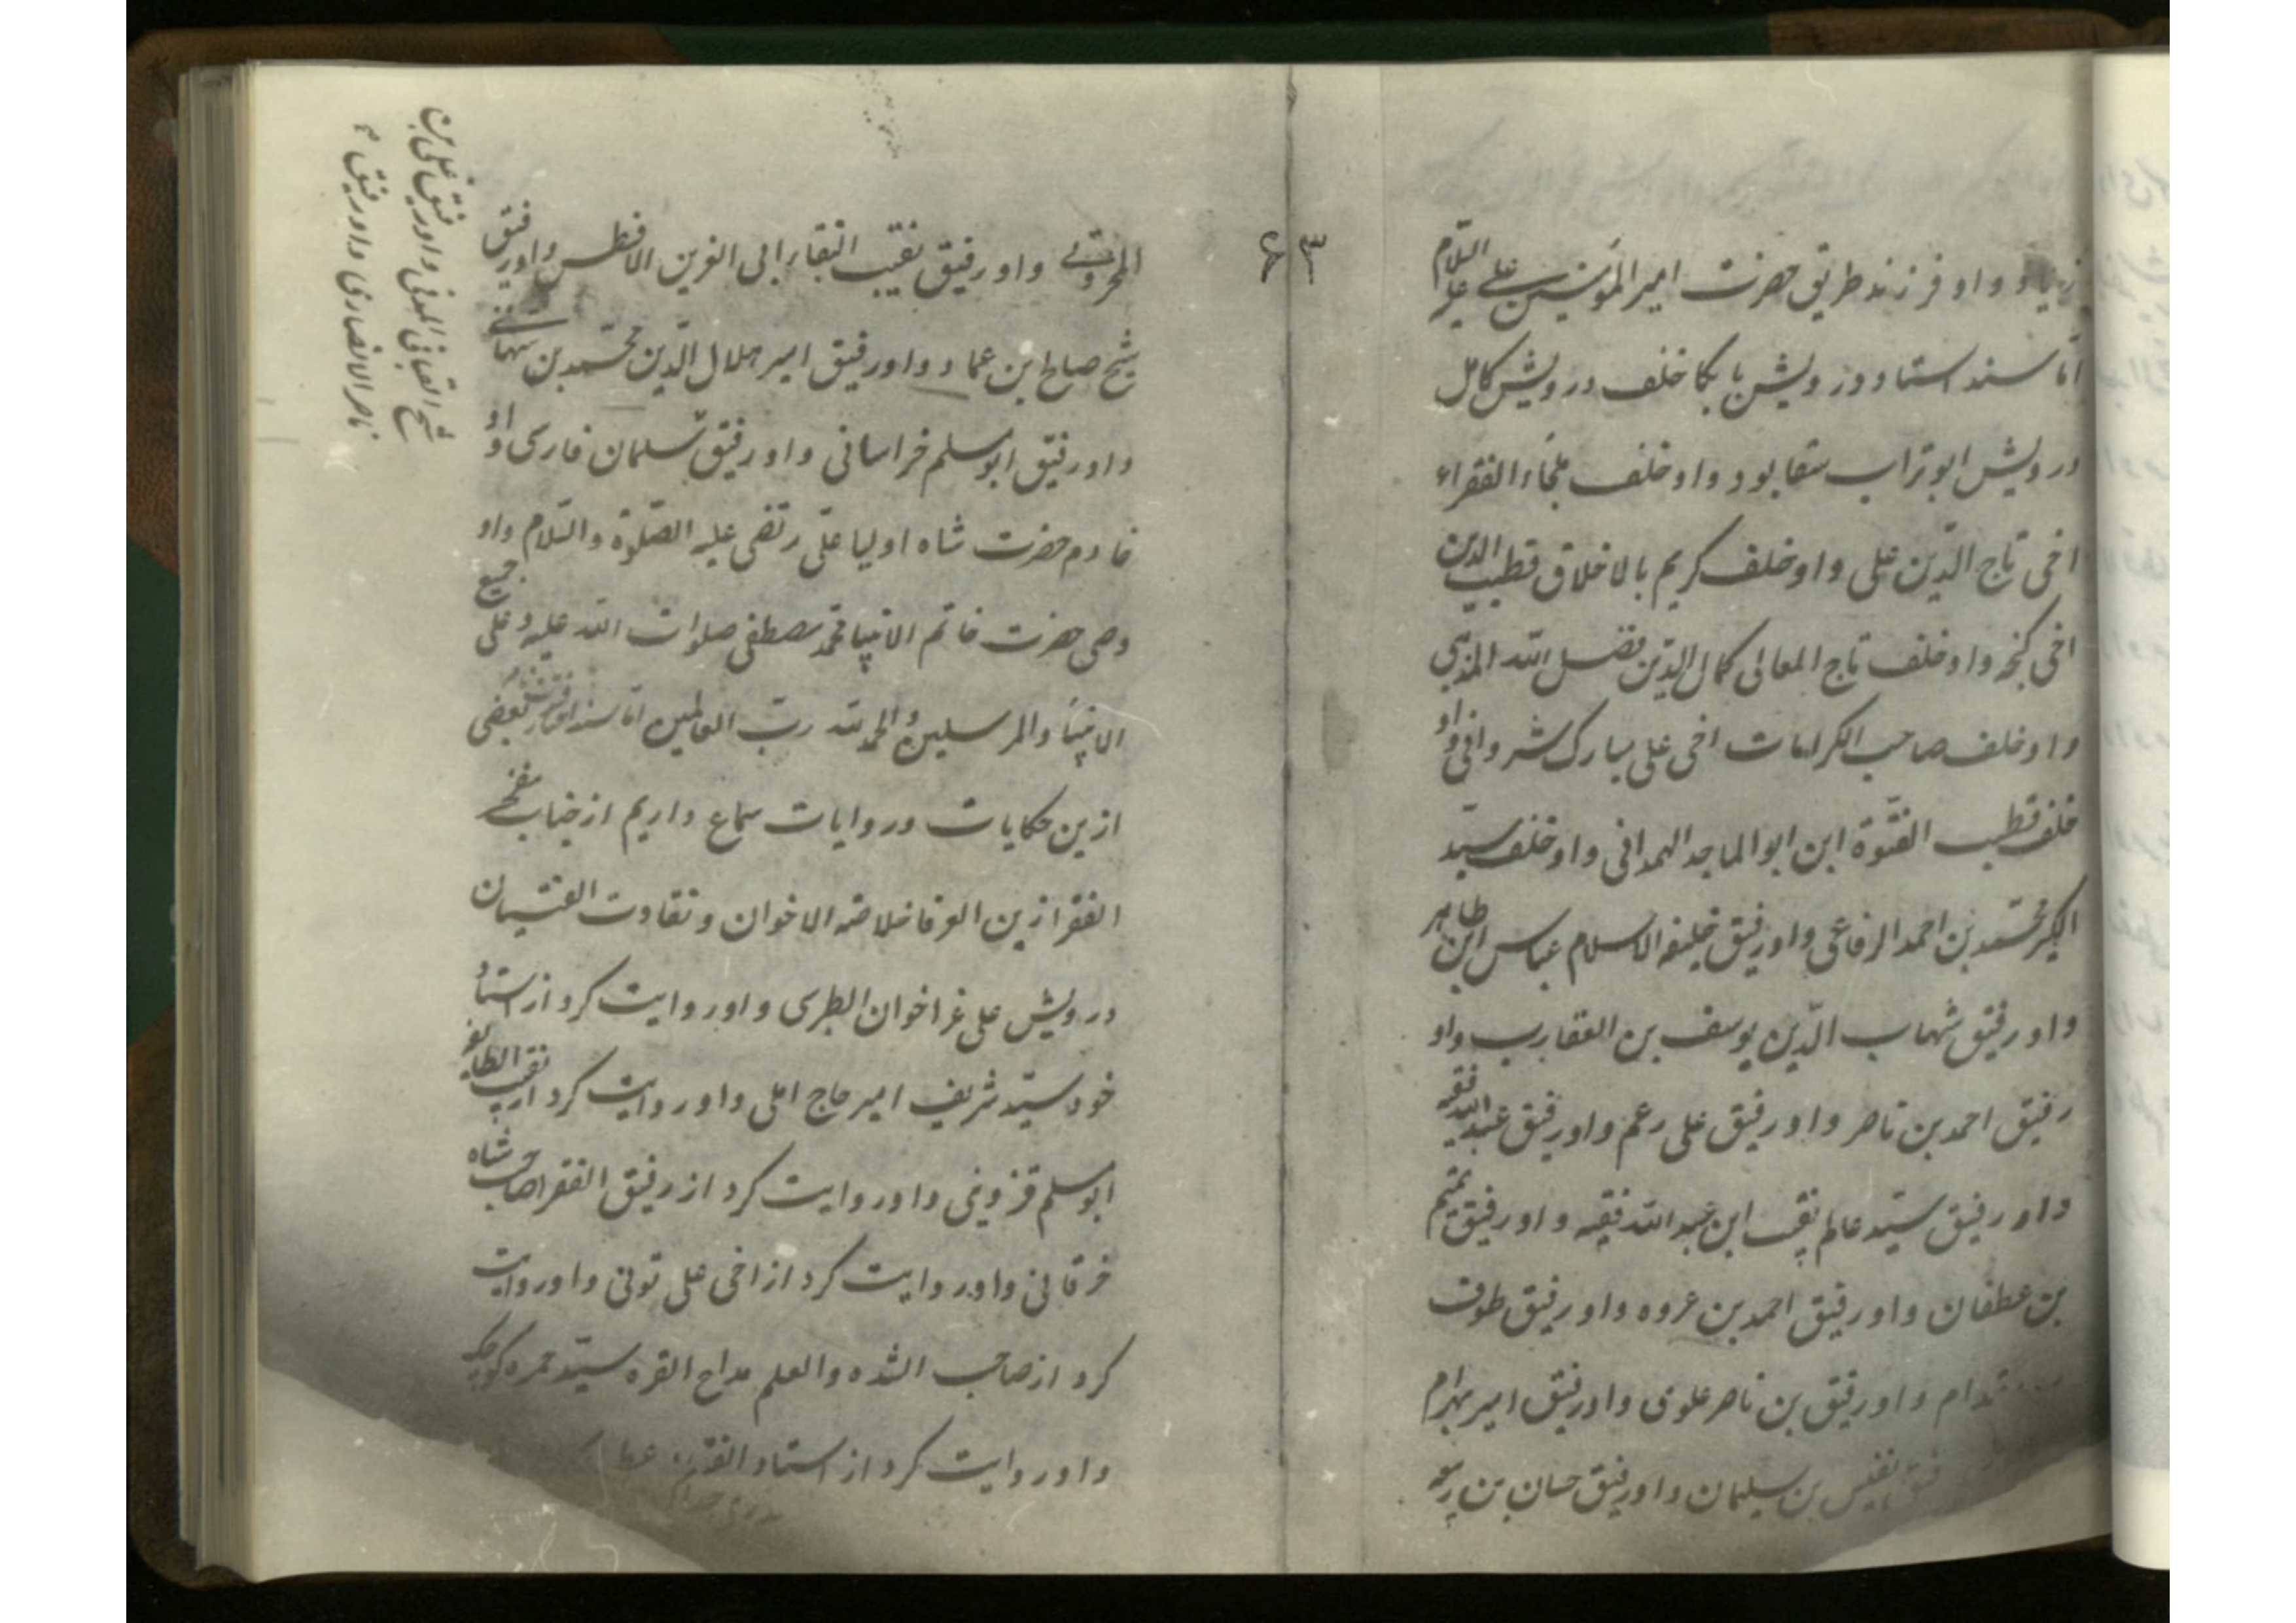 زیاد و او فرزند طریق حضرت امیر المؤمنین علی علیه السّلام
امّا سند استاد درویش بابکا خلف درویش کامل
درویش ابو تراب سقا بود و او خلف ملجاء الفقراء
اخی تاج الدّین علی و او خلف کریم بالاخلاق قطب الدین
اخی کنجه و او خلف تاج المعالی کمال الدّین فضل الله
و او خلف صاحب الکرامات اخی علی مبارک شروانی و او
خلف قطب الفتوّة ابن ابو الماجد الهمدانی و او خلف سیّد
الکبیر محمّد بن احمد الرفاعی و او رفیق خلیفه الاسلام عباس ابن طاهر
و او رفیق شهاب الدّین یوسف بن العقارب و او
رفیق احمد بن ناصر و او رفیق علی رعم و او رفیق عبد الله فقیه
و او رفیق سیّد عالم نقیب ابن عبد الله فقیه و او رفیق تمیم
بن عطفان و او رفیق احمد بن عروه و او رفیق طوق
و او رفیق بن ناصر علوی و او رفیق امیر بهرام
نفیس بن سلیمان و او رفیق حسان بن
۶۳
و او رفیق نقیب النقبا ابی الغرین الافطس و او رفیق
شیخ صالح ابن عماد و او رفیق امیر هلال الدّین محمّد بن
و او رفیق ابو مسلم خراسانی و او رفیق سلمان فارسی و او
خادم حضرت شاه اولیا علی رتضی علیه الصّلوة والسّلام و او
وصی حضرت خاتم الانبیا محمد مصطفی صلوات الله علیه و علی جمیع
الانبیا والمرسلین والحمد لله ربّ العالمین امّا سند
ازین حکایات و روایات سماع داریم از جناب مفخر
الفقرا زین الوفا خلاصه الاخوان و نقاوت الفتیان
درویش علی غرا خوان الطبری و او روایت کرد از استاد
خود سیّد شریف امیر حاج املی و او روایت کرد از نقیب الطایفه
ابو مسلم قزوینی و او روایت کرد از رفیق الفقرا صاحب شاه
خرقانی و او روایت کرد از اخی علی تونی و او روایت
کرد از صاحب الشده والعلم مداح القره سیّد حمزه کوچک
و او روایت کرد از استاد
شیخ القبانی المدنی و او رفیق علی بن
ناصر الانصاری و او رفیق